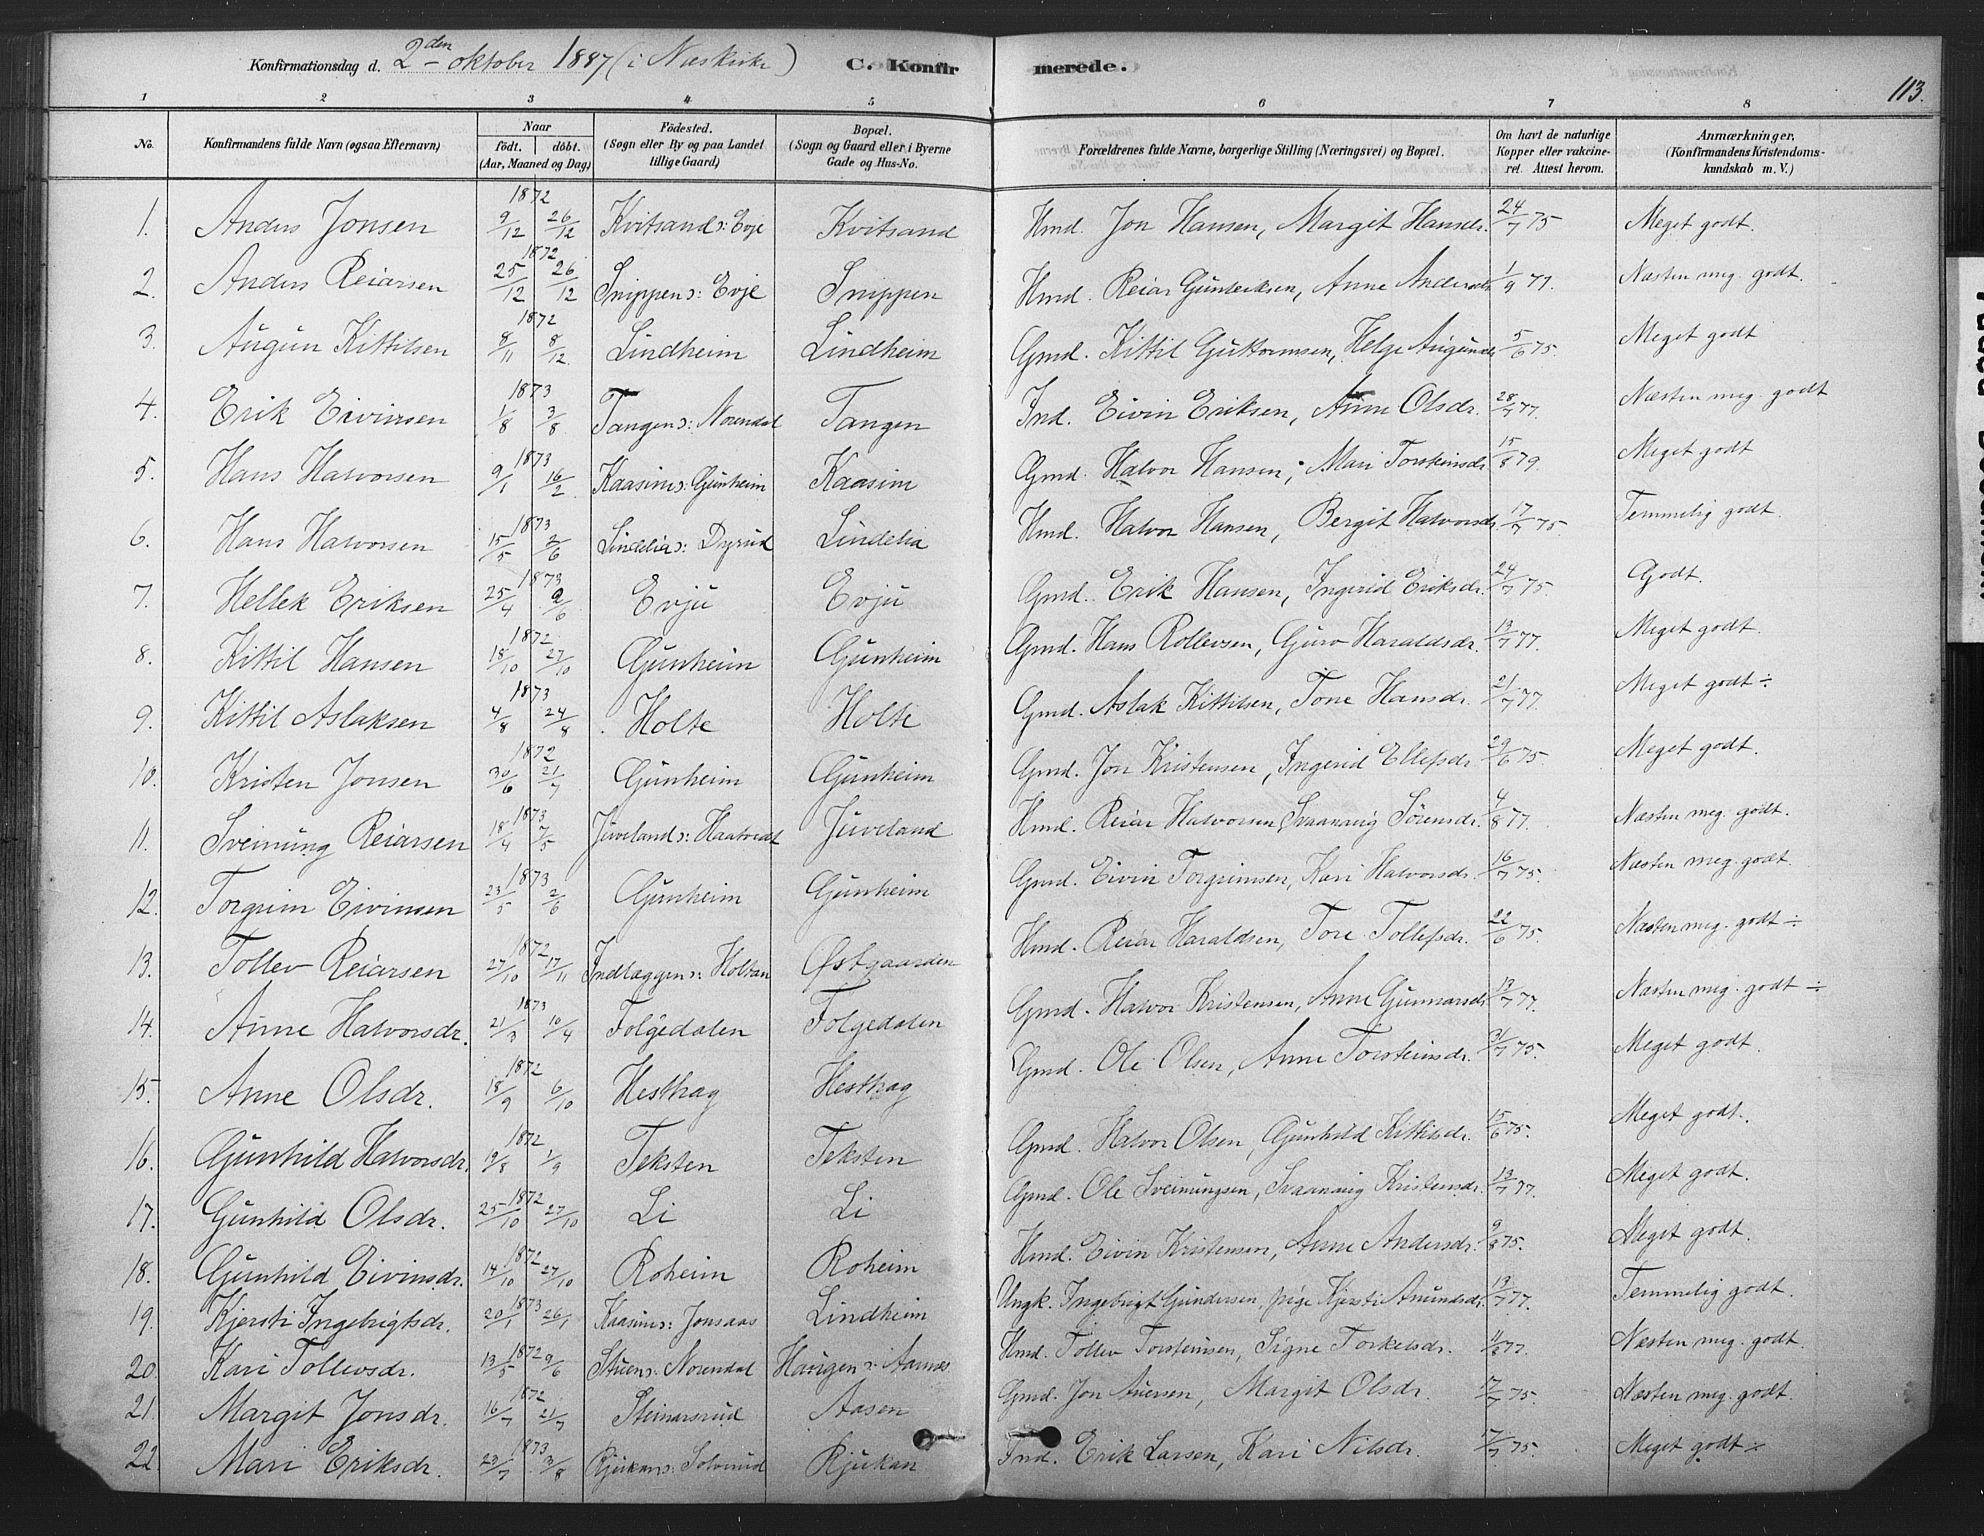 Konfirmationsdag d. 2den oktober 1887 (i Næskirke) C. Konfirmerede. 113.
1 2 3 4 5 6 7 8
No. Konfirmandens fulde Navn (ogsaa Efternavn) Naar födt. döbt. (Aar, Maaned og Dag) Födested. (Sogn eller By og paa Landet tillige Gaard) Bopæl. (Sogn og Gaard eller i Byerne Gade og Hus-No. Forældrenes fulde Navne, borgerlige Stilling (Næringsvei) og Bopæl. Om havt de naturlige Kopper eller vakcineret. Attest herom. Anmærkninger. (Konfirmandens Kristendomskundskab m. V.)
1. Anders Jonsen 1872 9/12 26/12 Kvitsand ɔ: Evje Kvitsand Hmd. Jon Hansen, Margit Hansdr. 24/7 75 Meget godt.
2. Anders Reiarsen 1872 25/12 26/12 Snippen ɔ: Evje Snippen Hmd. Reiar Gunleiksen, Anne Andersdr. 1/9 77. Næsten meg. godt.
3. Augun Kittilsen 1872 8/11 8/12 Lindheim Lindheim Gmd. Kittil Guttormsen, Helge Augunsdr. 5/6 75. Meget godt
4. Erik Eivinsen 1873 1/8 3/8 Tangen ɔ: Norendal Tangen Ind. Eivin Eriksen, Anne Olsdr. 28/7 77. Næsten meg. godt
5. Hans Halvorsen 1873 9/1 16/2 Kaasine ɔ: Gunheim Kaasim Gmd. Halvor Hansen, Mari Torsteinsdr. 15/8 79 Meget godt
6. Hans Halvorsen 1873 15/5 2/6 Lindelia ɔ: Dyrud Lindelia Hmd. Halvor Hansen, Bergit Halvorsdr. 17/7 75. Temmelig godt.
7. Hellek Eriksen 1873 25/4 2/6 Evju Evju Gmd. Erik Hansen, Ingerid Eriksdr. 24/7 75. Godt.
8. Kittil Hansen 1872 18/10 27/10 Gunheim Gunheim Gmd. Hans Rollevsen, Guro Haraldsdr. 13/7 77. Meget godt.
9. Kittil Aslaksen 1873 4/8 24/8 Holte Holte Gmd. Aslak Kittilsen, Tone Hansdr. 21/7 77 Meget godt ÷
10. Kristen Jonsen 1872 30/6 21/7 Gunheim Gunheim Gmd. Jon Kristensen, Ingerid Ellefsdr. 29/6 75. Meget godt.
11. Sveinung Reiarsen 1873 18/4 7/5 Juveland ɔ: Haatvedt Juveland Hmd. Reiar Halvorsen, Svaanaug Sörensdr. 4/8 77. Næsten meg. godt.
12. Torgrim Eivinsen 1873 23/5 2/6 Gunheim Gunheim Gmd. Eivin Torgrimsen, Kari Halvorsdr. 16/7 75. Næsten meg. godt.
13. Tollev Reiarsen 1872 27/10 17/11 Indlæggen ɔ: Holtan Østgaarden Hmd. Reiar Haraldsen, Tore Tollefsdr. 22/6 75. Næsten meg. godt ÷
14. Anne Halvorsdr. 1873 21/3 10/4 Folgedalen Folgedalen Gmd. Halvor Kristensen, Anne Gunnarsdr. 13/7 77. Næsten meg. godt ÷
15. Anne Olsdr. 1872 18/9 6/10 Hesthag Hesthag Gmd. Ole Olsen, Anne Torsteinsdr. 31/7 75. Meget godt.
16. Gunhild Halvorsdr. 1872 19/8 1/9 Teksten Teksten Gmd. Halvor Olsen, Gunhild Kittilsdr. 15/6 75. Meget godt.
17. Gunhild Olsdr. 1872 25/10 27/10 Li Li Gmd. Ole Sveinungsen, Svaanaug Kristensdr. 13/7 77. Meget godt.
18. Gunhild Eivinsdr. 1872 14/10 27/10 Roheim Roheim Hmd. Eivin Kristensen, Anne Andersdr. 9/8 75. Meget godt.
19. Kjersti Ingebrigtsdr. 1873 20/1 26/1 Kaasine ɔ: Jonsaas Lindheim Ungk. Ingebrigt Gundersen, pige Kjersti Amundsdr. 13/7 77. Temmelig godt.
20. Kari Tollevsdr. 1872 13/5 9/6 Stuen ɔ: Norendal Haugen ɔ: Aarnes Hmd. Tollev Torsteinsen, Signe Torkelsdr. 11/8 77. Næsten meg. godt.
21. Margit Jonsdr. 1872 16/7 21/7 Steinarsrud Aasen Gmd. Jon Auersen, Margit Olsdr. 17/7 75. Næsten meg. godt
22. Mari Eriksdr. 1873 23/7 3/8 Rjukan ɔ: Solverud Rjukan Ind. Erik Larsen, Kari Nilsdr. 17/7 75. Meget godt ÷